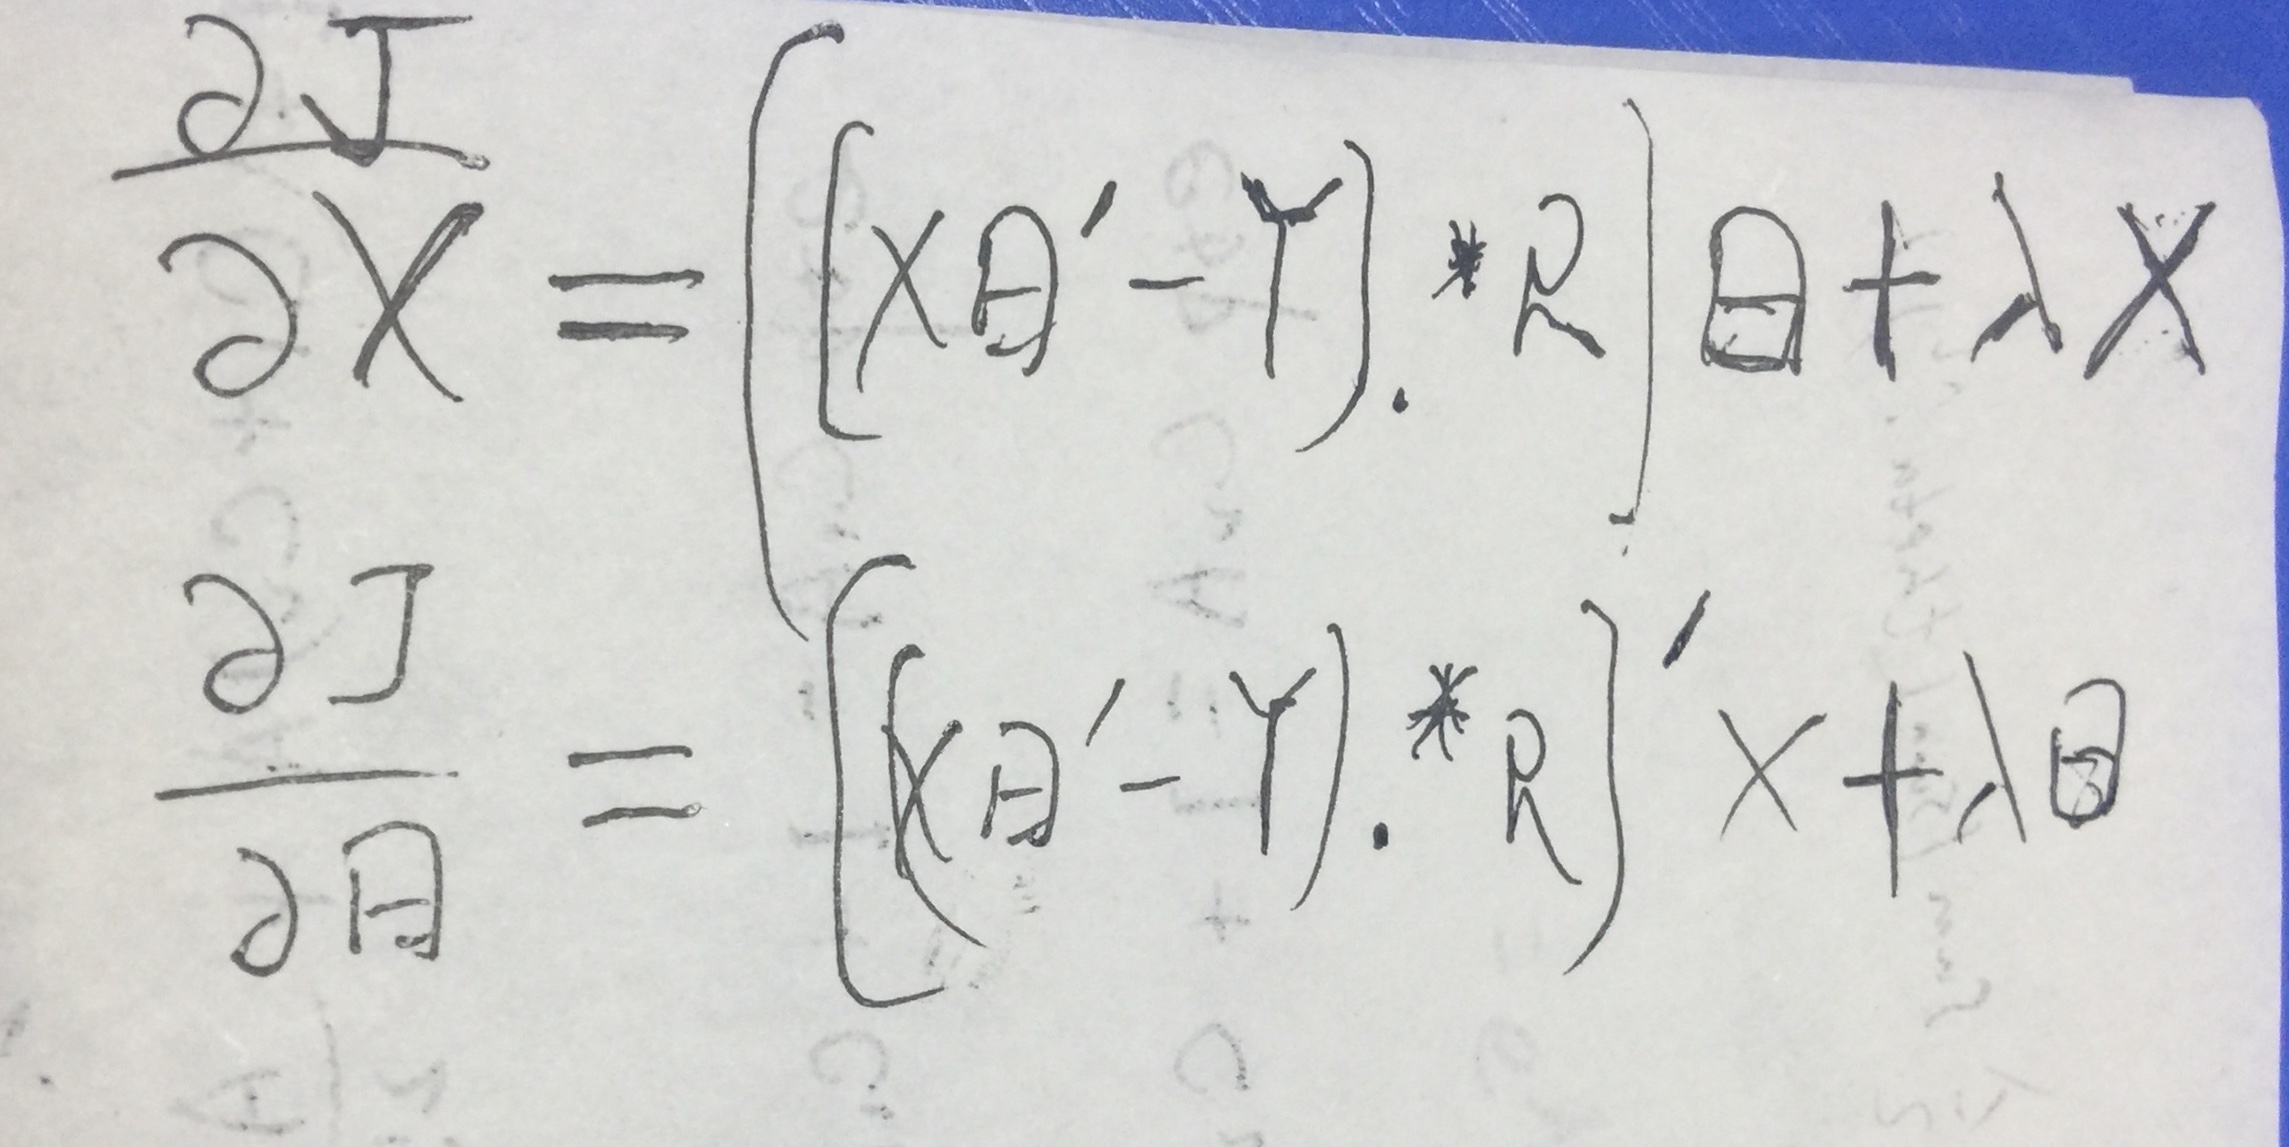 ∂J/∂X = ((XΘ' - Y) .* R) Θ + λX
∂J/∂Θ = ((XΘ' - Y) .* R)' X + λΘ